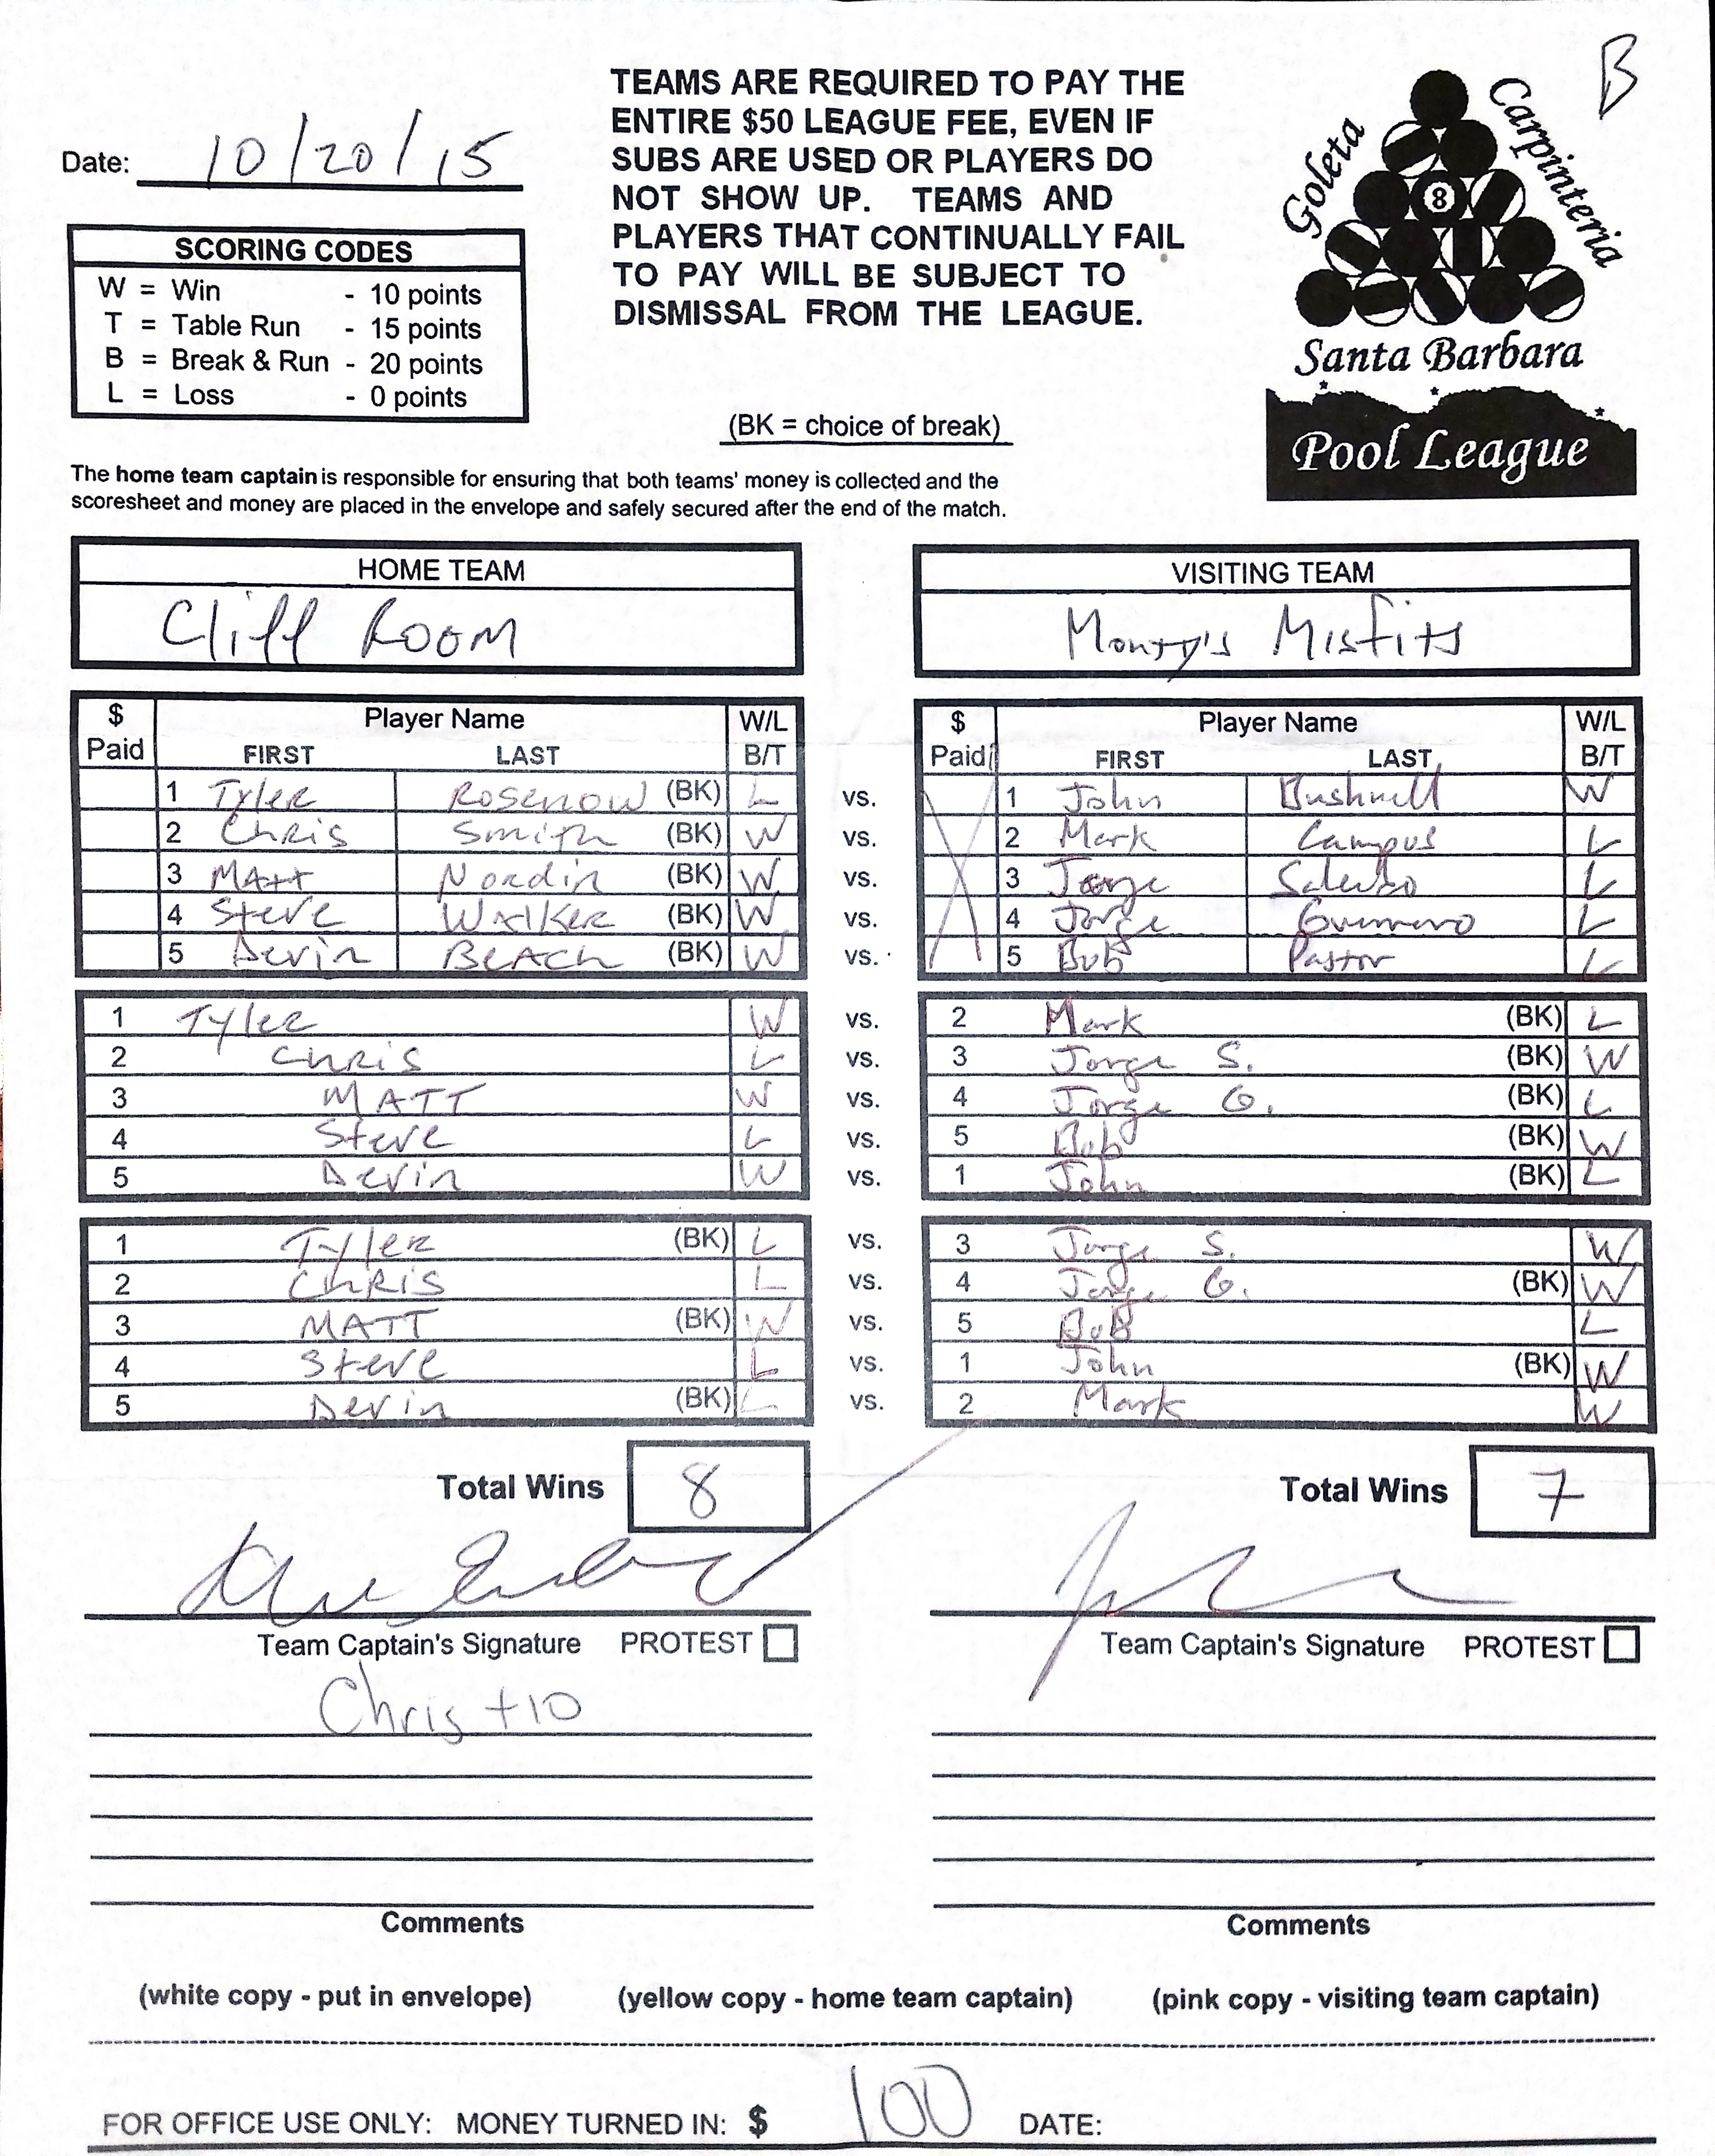 B
Date: 10/20/15
TEAMS ARE REQUIRED TO PAY THE
ENTIRE $50 LEAGUE FEE, EVEN IF
SUBS ARE USED OR PLAYERS DO
NOT SHOW UP. TEAMS AND
PLAYERS THAT CONTINUALLY FAIL
TO PAY WILL BE SUBJECT TO
DISMISSAL FROM THE LEAGUE.
Goleta
Carpinteria
8
Santa Barbara
Pool League
SCORING CODES
W = Win - 10 points
T = Table Run - 15 points
B = Break & Run - 20 points
L = Loss - 0 points
(BK = choice of break)
The home team captain is responsible for ensuring that both teams' money is collected and the
scoresheet and money are placed in the envelope and safely secured after the end of the match.
HOME TEAM VISITING TEAM
Cliff Room Monty's Misfits
$ Player Name W/L $ Player Name W/L
Paid FIRST LAST B/T Paid FIRST LAST B/T
1 Tyler Rosenow (BK) L vs. 1 John Bushnell W
2 Chris Smith (BK) W vs. 2 Mark Campus L
3 Matt Nordin (BK) W vs. 3 Jorge L
4 Steve Walker (BK) W vs. 4 Jorge Guerrero L
5 Devin Beach (BK) W vs. 5 Bob Pastor L
1 Tyler W vs. 2 Mark (BK) L
2 Chris L vs. 3 Jorge S. (BK) W
3 MATT W vs. 4 Jorge G. (BK) L
4 Steve L vs. 5 Bob (BK) W
5 Devin W vs. 1 John (BK) L
1 Tyler (BK) L vs. 3 Jorge S. W
2 Chris L vs. 4 Jorge G. (BK) W
3 MATT (BK) W vs. 5 Bob L
4 Steve L vs. 1 John (BK) W
5 Devin (BK) L vs. 2 Mark W
Total Wins 8 Total Wins 7
Team Captain's Signature PROTEST Team Captain's Signature PROTEST
Chris +10
Comments Comments
(white copy - put in envelope) (yellow copy - home team captain) (pink copy - visiting team captain)
FOR OFFICE USE ONLY: MONEY TURNED IN: $ 100 DATE: